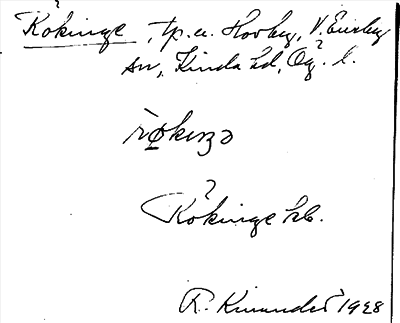 Rökinge, tp. u. Hovby, V. Eneby
sn, Kinda hd, Ög. l.
rø̀kiŋə
Rökinge kb.
R. Kinander 1928